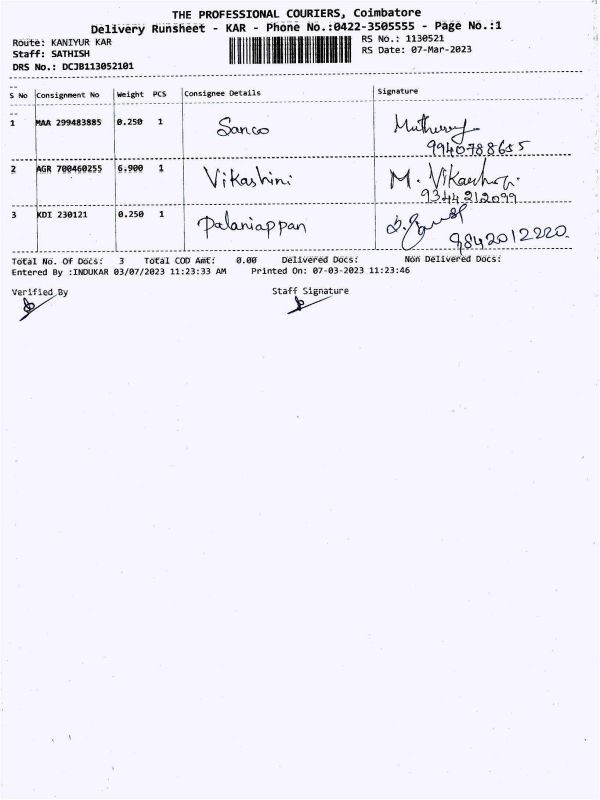 THE PROFESSIONAL COURIERS, Coimbatore
Delivery Runsheet - KAR - Phone No.:0422-3505555 - Page No.:1
Route: KANIYUR KAR
RS No.: 1130521
Staff: SATHISH
RS Date: 07-Mar-2023
DRS No.: DCJB113052101
S No Consignment No Weight PCS Consignee Details Signature
1 MAA 299483885 0.250 1 Sanco
9940788655
2 AGR 700460255 6.900 1 Vikashini M. Vikashini
9344212099
3 KDI 230121 0.250 1 Palaniappan
9842012220
Total No. Of Docs: 3 Total COD Amt: 0.00 Delivered Docs: Non Delivered Docs:
Entered By :INDUKAR 03/07/2023 11:23:33 AM Printed On: 07-03-2023 11:23:46
Verified By Staff Signature